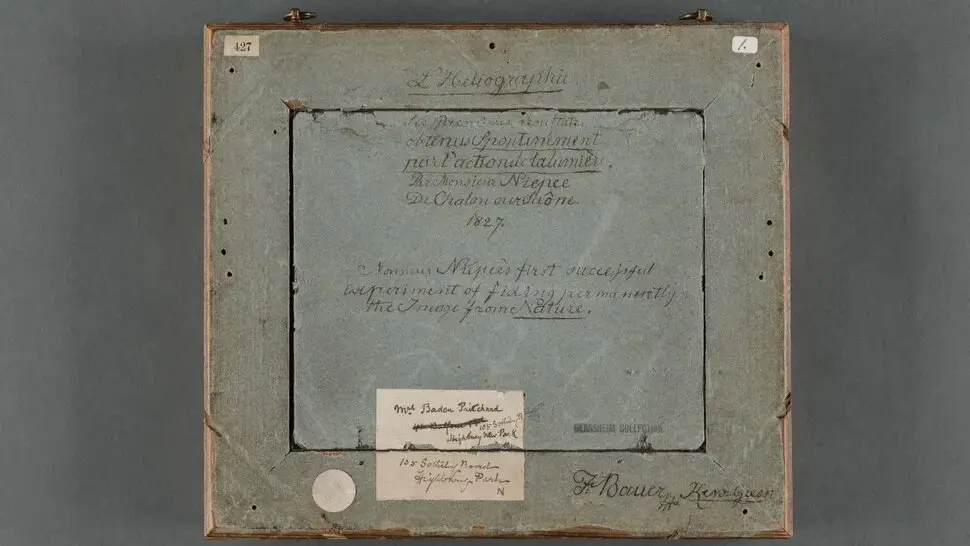 427
1.
L'Heliographie.
Les premiers resultats
obtenus Spontanement
par l'action de la lumière.
Par Monsieur Niepce
De Chalon sur Saône.
1827.
Monsieur Niepce's first successful
experiment of fixing permanently
the Image from Nature.
Mrs Baden Pritchard
105
Highbury New Park
GERNSHEIM COLLECTION
105 Road
Highbury Park
N
F. Bauer Kew Green